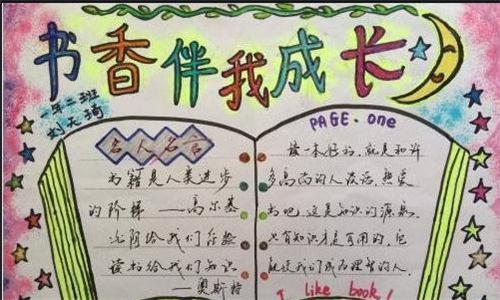 书香伴我成长
一年二班
刘天琦
名人名言
书籍是人类进步
的阶梯——高尔基
光阴给我们经验
读书给我们知识
——奥斯特
PAGE. one
读一本好书，就是和许
多高尚的人谈话，热爱
书吧，这是知识的源泉，
只有知识才是有用的，它
能使我们成为理智的人
I like book!